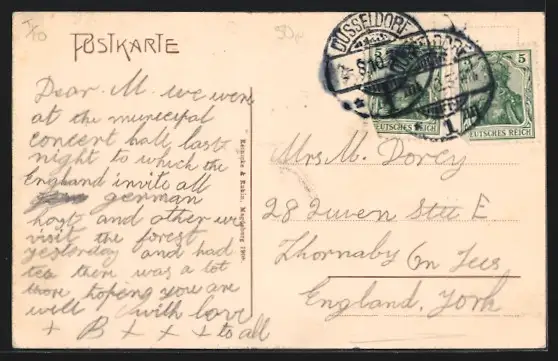 50
POSTKARTE
DÜSSELDORF
DÜSSELDORF
1
5
5
DEUTSCHES REICH
DEUTSCHES REICH
Dear M. we were
at the municipal
concert hall last
night to which the
England invite all
german
host and other we
visit the forest
yesterday and had
tea there was a lot
there hoping you are
well with love
+ B + + + to all
Magdeburg 1908.
Mrs M. Dorcy
28 Queen Stre E
Thornaby On Tees
England. York